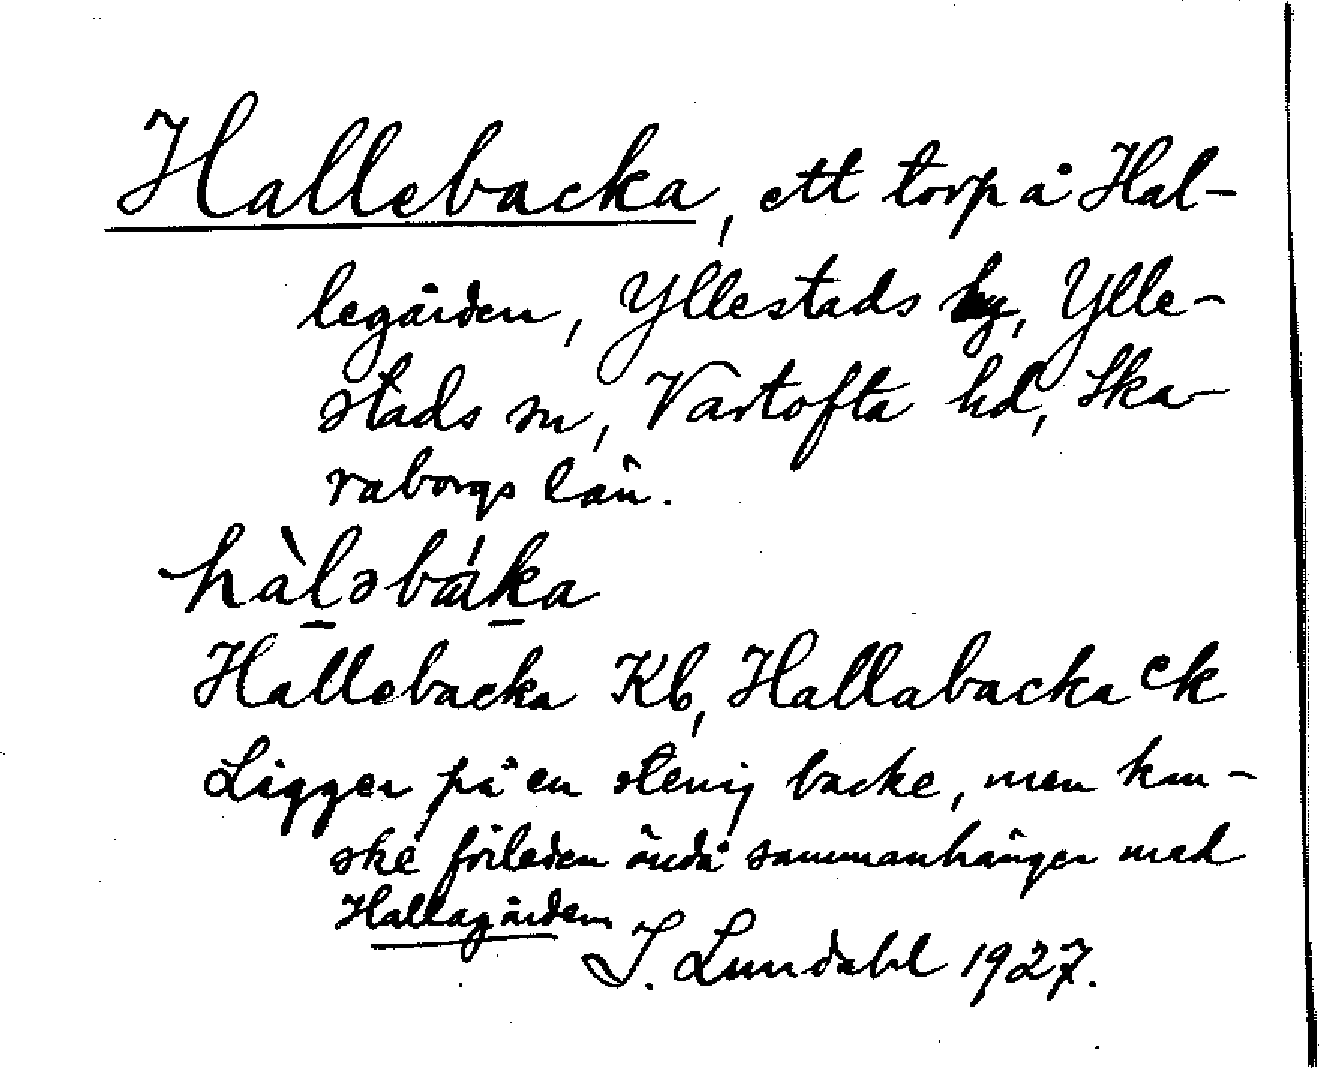 Hallebacka, ett torp å Hal-
legården, Yllestads by, Ylle-
stads sn, Vartofta hd, Ska-
raborgs län.
hàl̠əbáka
Hallebacka Kb, Hallabacka ek
Ligger på en stenig backe, men kan-
ske förleden ändå sammanhänger med
Hallagården
I. Lundahl 1927.